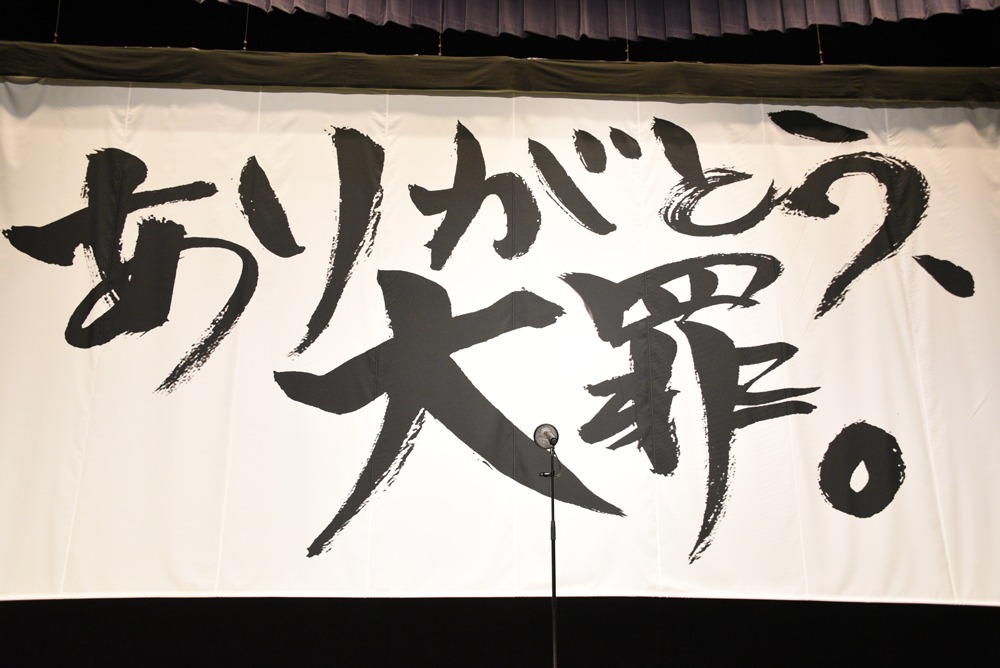 ありがとう、
大罪。